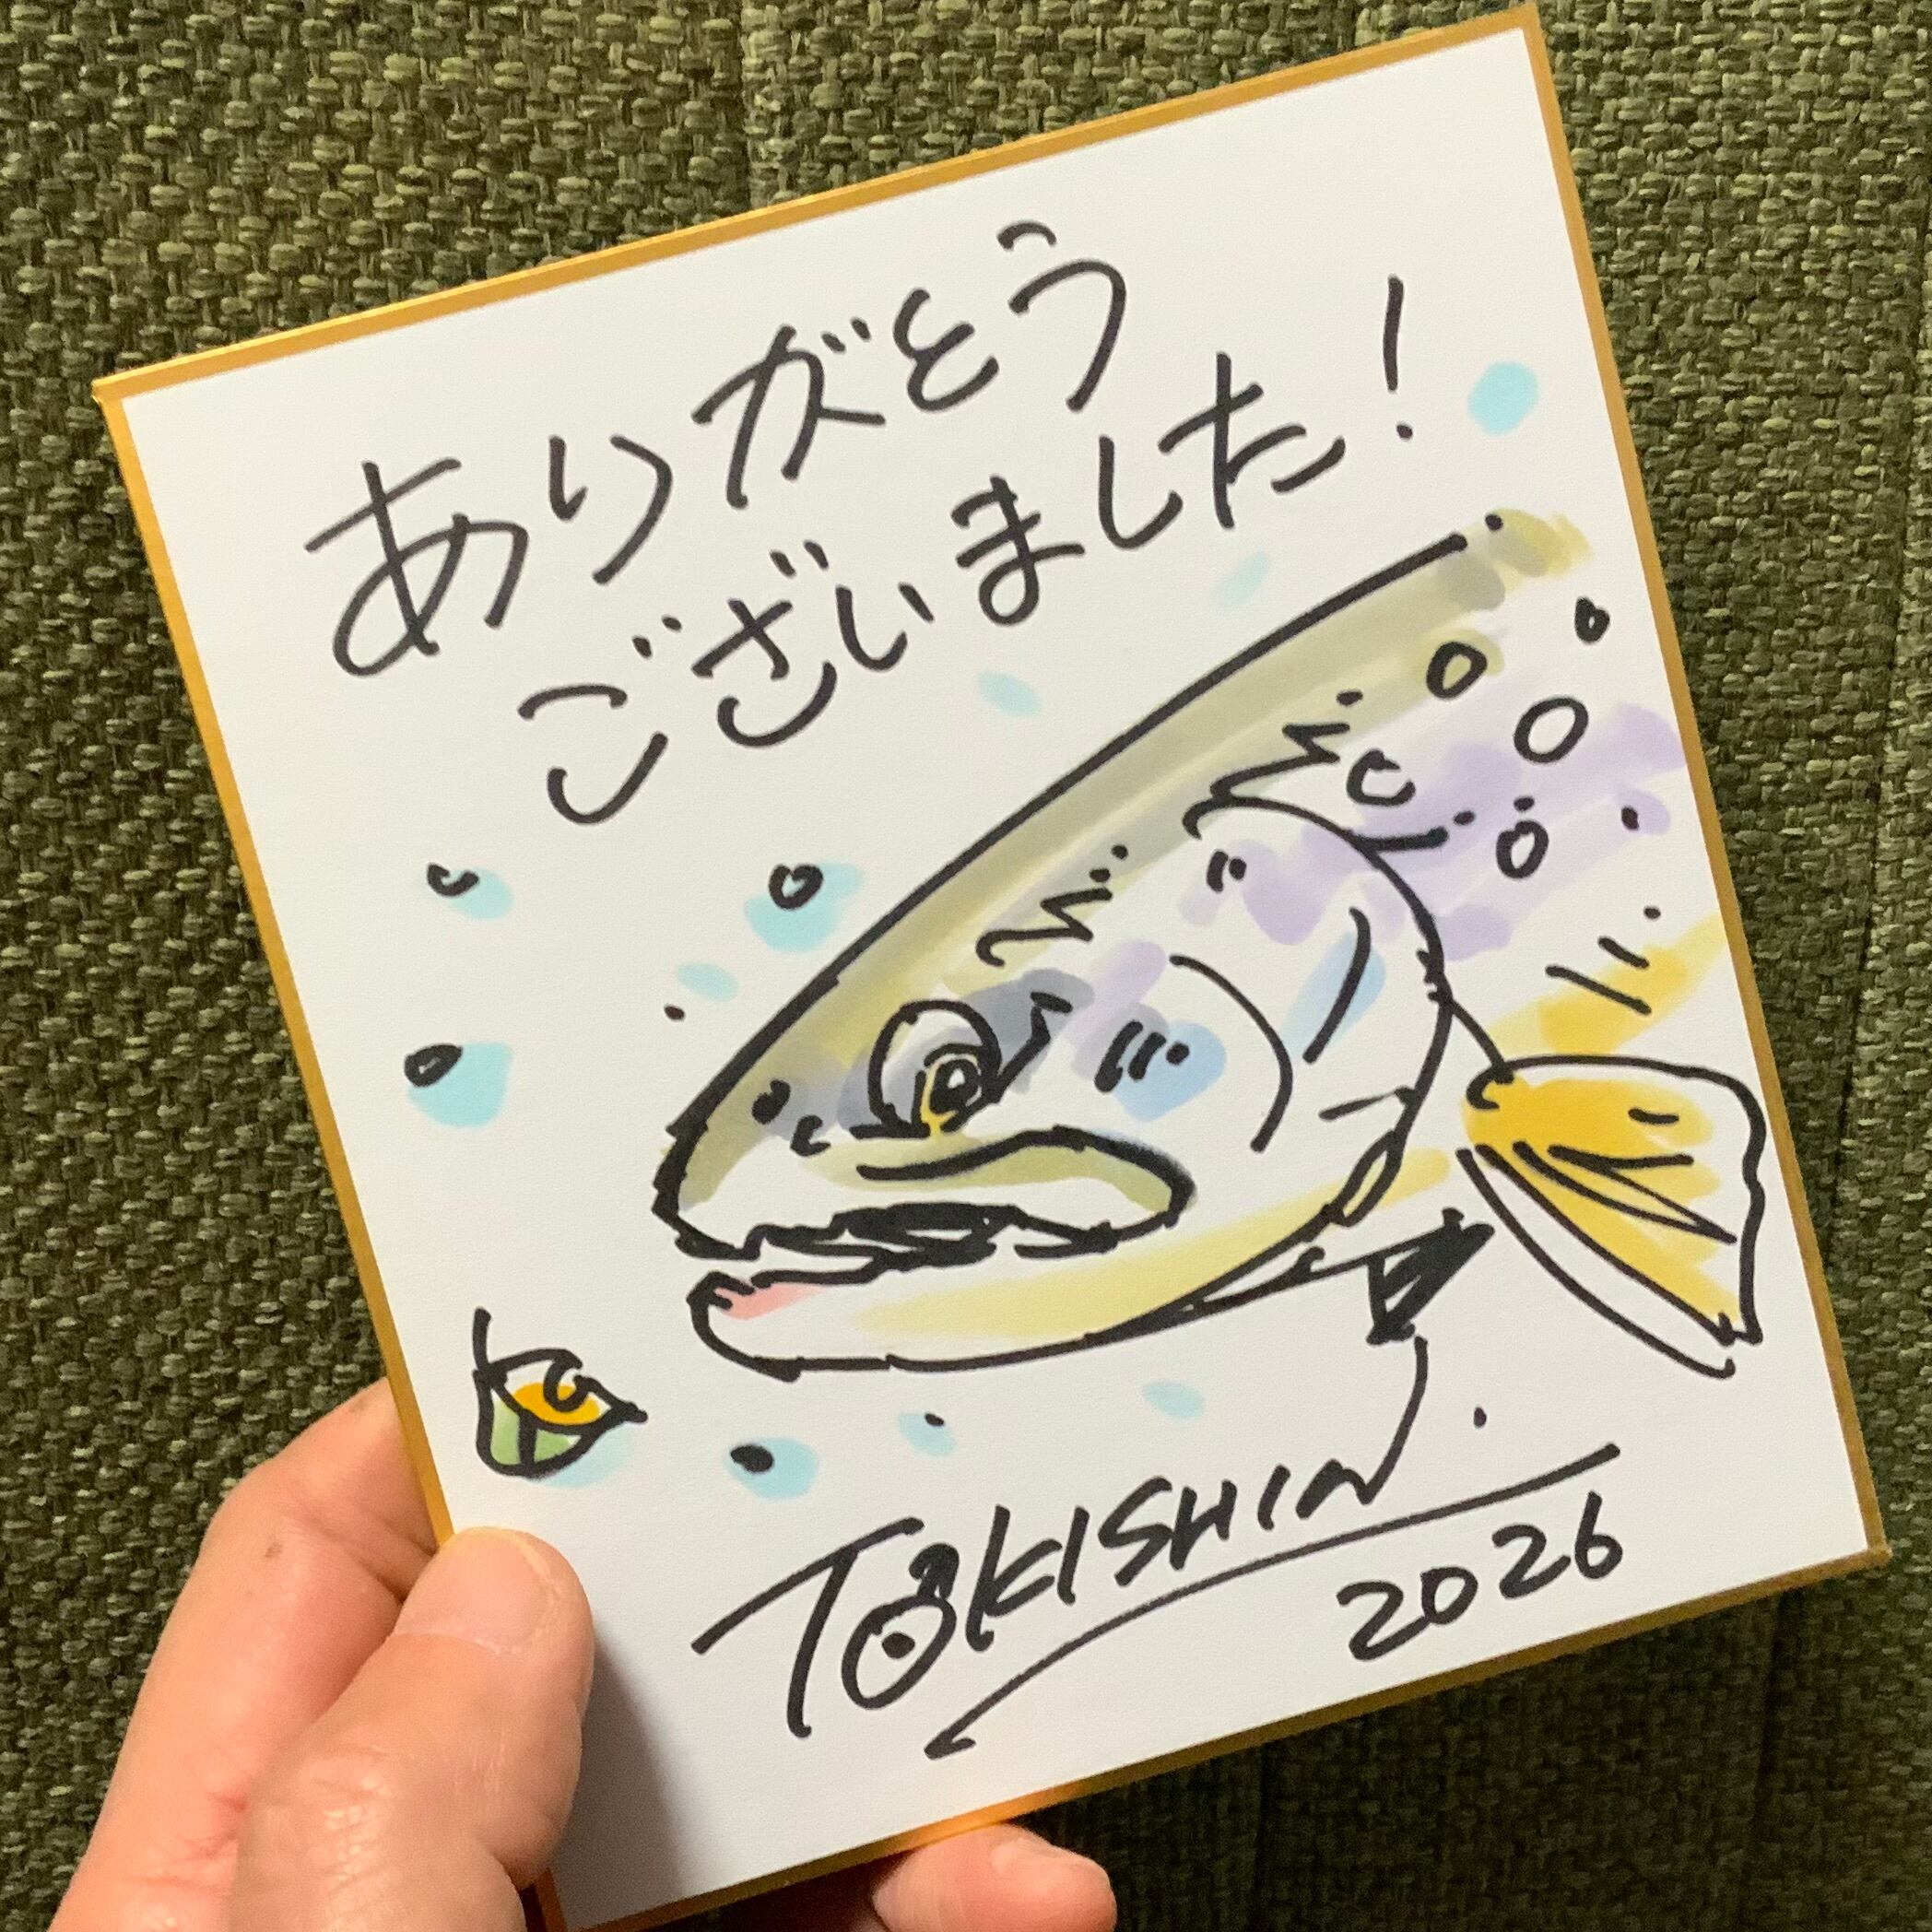 ありがとう
ございました!
TOKISHIN.
2026